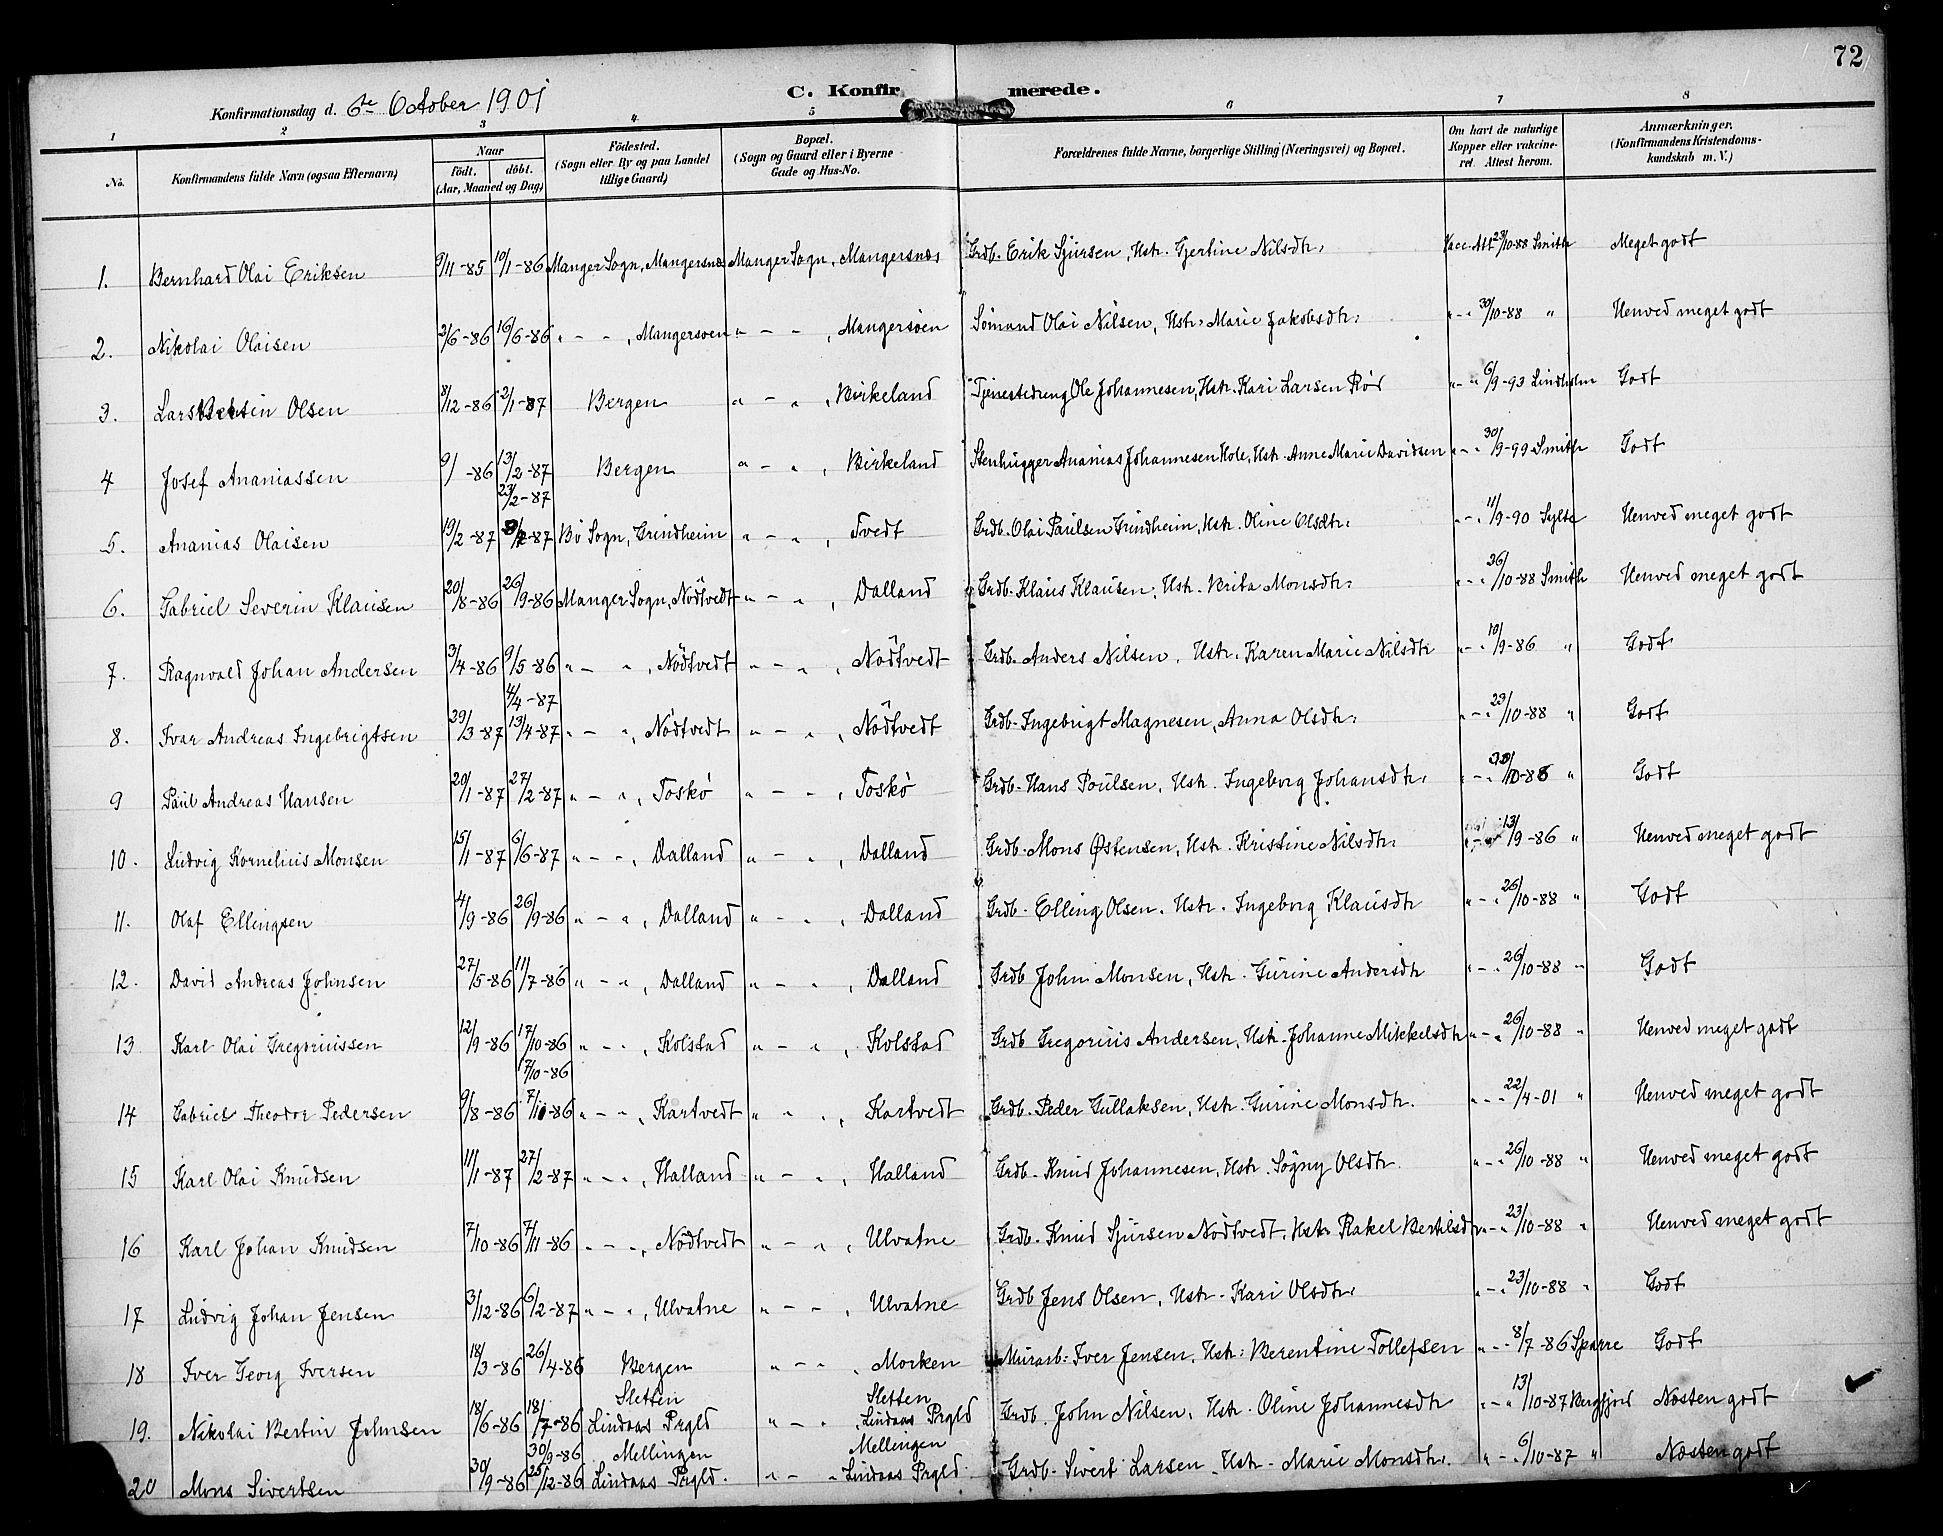 72
C. Konfirmerede.
Konfirmationsdag d. 6te October 1901
1 2 3 4. 5 6 7 8
No. Konfirmandens fulde Navn (ogsaa Efternavn) Naar født. døbt. (Aar, Maaned og Dag) Födested. (Sogn eller By og paa Landet tillige Gaard) Bopæl. (Sogn og Gaard eller i Byerne Gade og Hus-No. Forældrenes fulde Navne, borgerlige Stilling (Næringsvei) og Bopæl. Om havt de naturlige Kopper eller vakcineret. Attest herom. Anmærkninger. (Konfirmandens Kristendomskundskab m. V.)
1. Bernhard Olai Eriksen 9/11-85 10/1-86 Manger Sogn, Mangersnes Manger Sogn, Mangersnes Grdb. Erik Sjursen, Hstr. Gjertine Nilsdtr. Vacc. Att 23/10-88 Smith Meget godt
2. Nikolai Olaisen 2/6-86 16/6-86 " - - , Mangersøen " - - , Mangersøen Sømand Olai Nilsen, Hstr. Marie Jakobsdtr. " - " 30/10-88 " Henved meget godt
3. Lars Olsen 8/12-86 2/1-87 Bergen " - " , Birkeland Tjenestedreng Ole Johannesen, Hstr. Kari Larsen Rød " - " 6/9-93 Lindholm Godt
4 Josef Ananiassen 9/ -86 13/2-87 Bergen " - " , Birkeland Stenhugger Ananias Johannesen Hole, Hstr. Anne Marie Davidsen " - " 30/9-99 Smith Godt
23/2-87
5. Ananias Olaisen 19/2-87 -87 Bø Sogn, Grindheim " - " , Tvedt Grdb. Olai Paulsen Grindheim, Hstr. Oline Olsdtr. " - " 11/9-90 Sylte Henved meget godt
6. Gabriel Severin Klausen 20/8-86 26/9-86 Manger Sogn, Nødtvedt " - " , Dalland Grdb. Klaus Klausen, Hstr. Brita Monsdtr. " - " 26/10-88 Smith Henved meget godt
7. Ragnvald Johan Andersen 3/4-86 9/5-86 " - " , Nødtvedt " - " , Nødtvedt Grdb. Anders Nilsen, Hstr. Karen Marie Nilsdtr " - " 10/9-86 " Godt
4/4-87
8. Ivar Andreas Ingebrigtsen 29/3-87 13/4-87 " - " , Nødtvedt " - " , Nødtvedt Grdb. Ingebrigt Magnesen, Anna Olsdtr. " - " 23/10-88 " Godt
9 Paul Andreas Hansen 20/1-87 27/2-87 " - " , Toskø " - - , Toskø Grdb. Hans Poulsen, Hstr. Ingeborg Johansdtr. " - " " Godt
10. Ludvig Kornelius Monsen 15/1-87 6/6-87 " - - , Dalland " - " , Dalland Grdb. Mons Østensen, Hstr. Kristine Nilsdtr. 13/9-86 " Henved meget godt
11. Olaf Ellingsen 4/9-86 26/9-86 " - " , Dalland " - - , Dalland Grdb. Elling Olsen, Hstr. Ingeborg Klausdtr " - " 26/10-88 " Godt
12. David Andreas Johnsen 27/5-86 11/7-86 " - " , Dalland " - " , Dalland Grdb John Monsen, Hstr. Gurine Andersdtr " - " 26/10-88 " Godt
13. Karl Olai Gregoriussen 12/9-86 17/10-86 " - - , Kolstad " - " , Kolstad Grdb Gregorius Andersen, Hstr. Johanne Mikkelsdtr " - " 26/10-88 " Henved meget godt
17/10-86
14 Gabriel Theodor Pedersen 9/8-86 7/10-86 " - " , Kartvedt " " , Kartvedt Grdb. Peder Gullaksen, Hstr. Gurine Monsdtr. " - " 22/4-01 " Henved meget godt
15 Karl Olai Knudsen 11/1-87 27/2-87 " - " , Halland " - " , Halland Grdb. Knud Johannesen, Hstr. Søgny Olsdtr. " - " 26/10-88 " Henved meget godt
16 Karl Johan Knudsen 7/10-86 7/11-86 " - " , Nødtvedt " - " , Ulvatne Grdb. Knud Sjursen Nødtvedt, Hstr. Rakel Bertilsdtr " - " 23/10-88 " Henved meget godt
17 Ludvig Johan Jensen 3/12-86 6/2-87 " - " , Ulvatne " - - , Ulvatne Grdb Jens Olsen, Hstr. Kari Olsdtr. " - " 23/10-88 " Godt
18 Iver Georg Iversen 18/3-86 26/4-86 Bergen " - " , Morken Murarb. Iver Jensen, Hstr. Berentine Tollefsen " - " 8/7-86 Sparre Godt
Sletten Sletten
19. Nikolai Bertin Johnsen 18/6-86 18/7-86 Lindaas Prgld " - " Lindaas Prgld Grdb. John Nilsen, Hstr. Oline Johannesdtr " - " 13/10-87 Bergfjord Næsten godt
30/9-86 Mellingen Mellingen
20 Mons Sivertsen 30/9-86 25/12-86 Lindaas Prgld. " - " Lindaas Prgld. Grdb. Sivert Larsen, Hstr. Marie Monsdtr. " - " 6/10-87 " Næsten godt